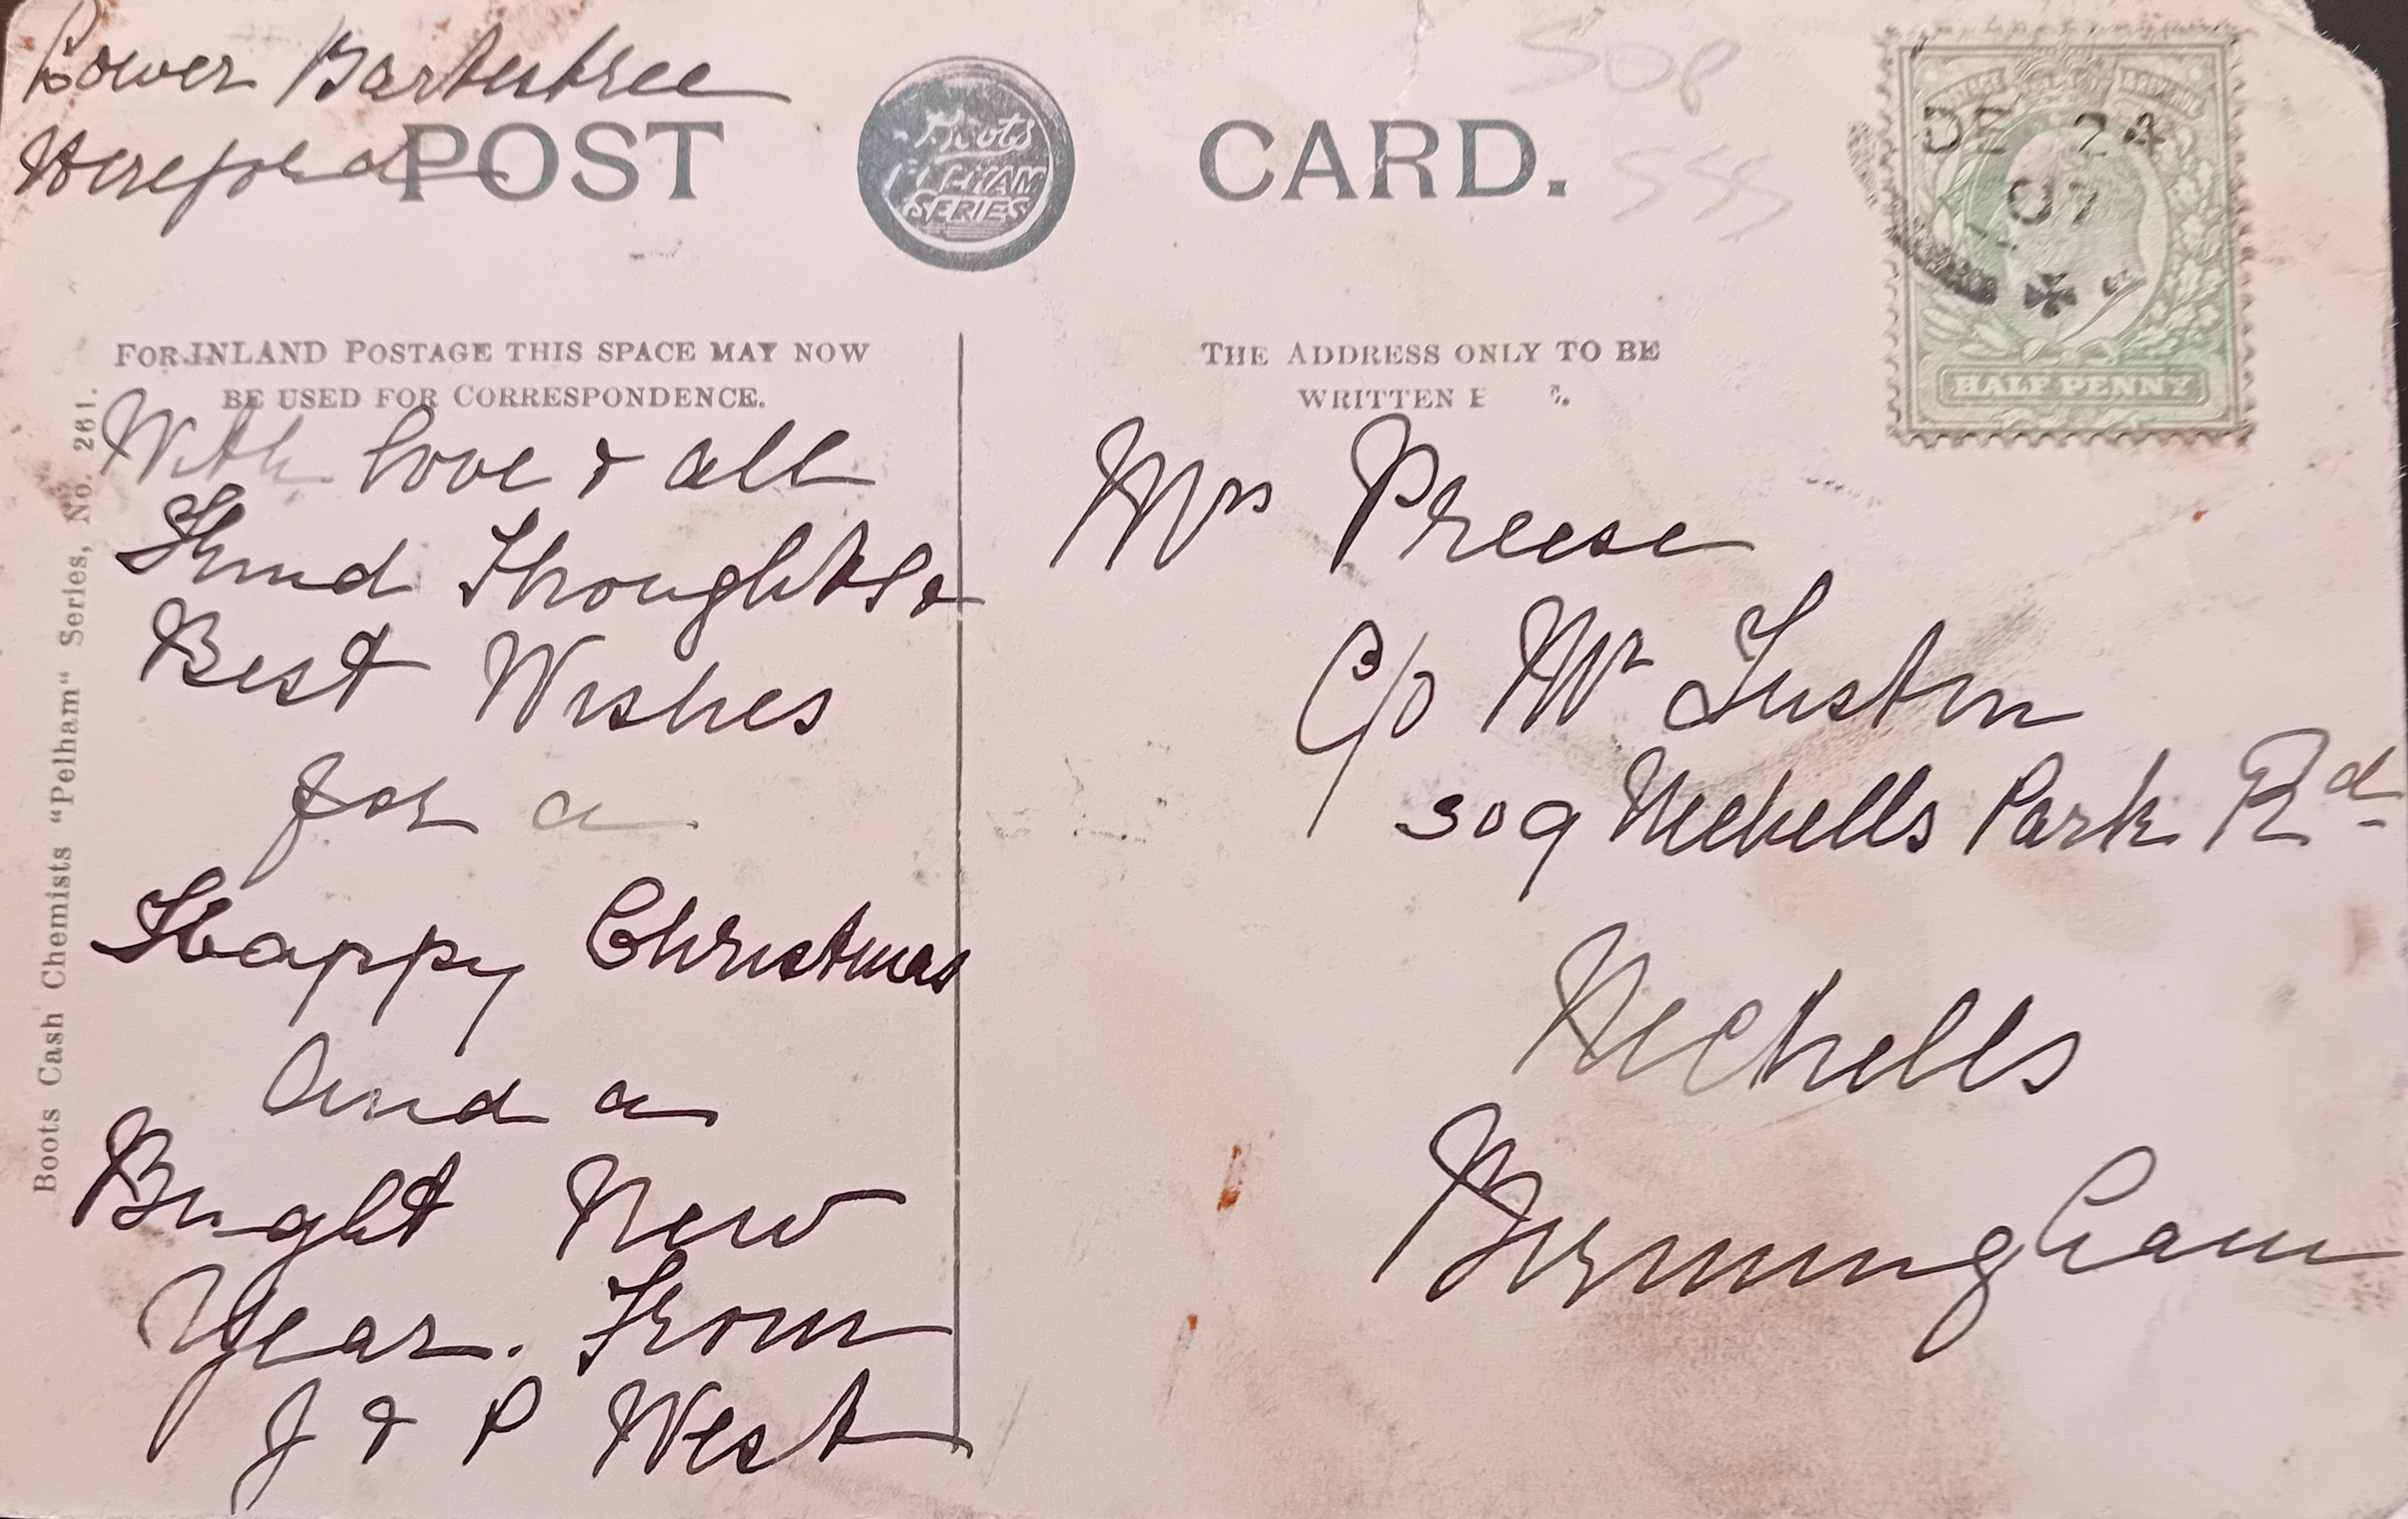 Lower Bartestree
Hereford
POST CARD.
Boots
PELHAM
SERIES
50p
555
DE 24
07
HALF PENNY
FOR INLAND POSTAGE THIS SPACE MAY NOW
BE USED FOR CORRESPONDENCE.
THE ADDRESS ONLY TO BE
WRITTEN
Boots Cash Chemists "Pelham" Series, No. 261.
With love & all
Kind Thoughts &
Best Wishes
for a
Happy Christmas
And a
Bright New
Year. From
J & P West
Mrs Preese
C/o Mr Tustin
309 Nechells Park Rd
Nechells
Birmingham